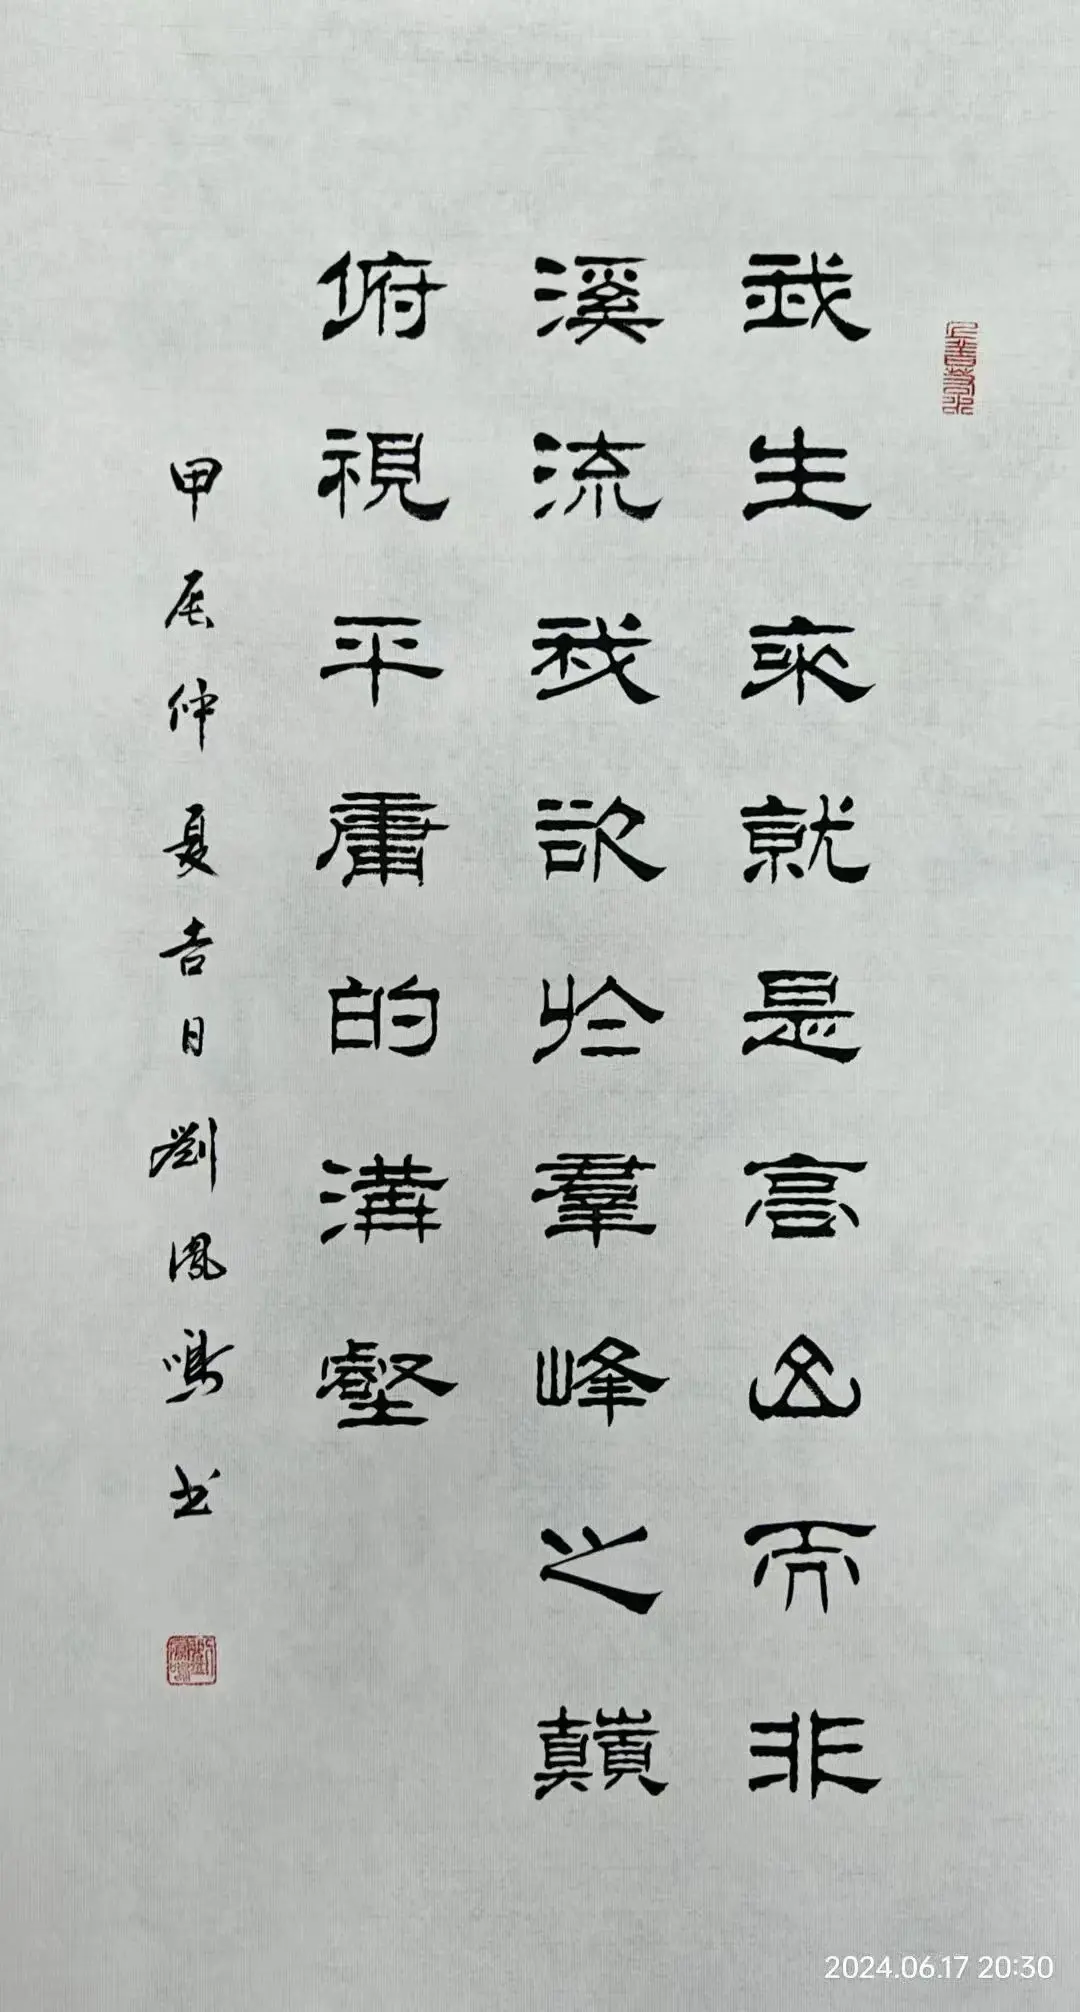 上善若水
我生來就是高山而非
溪流我欲於羣峰之巔
俯視平庸的溝壑
甲辰仲夏吉日劉鳳鳴书
劉鳳鳴印
2024.06.17 20:30